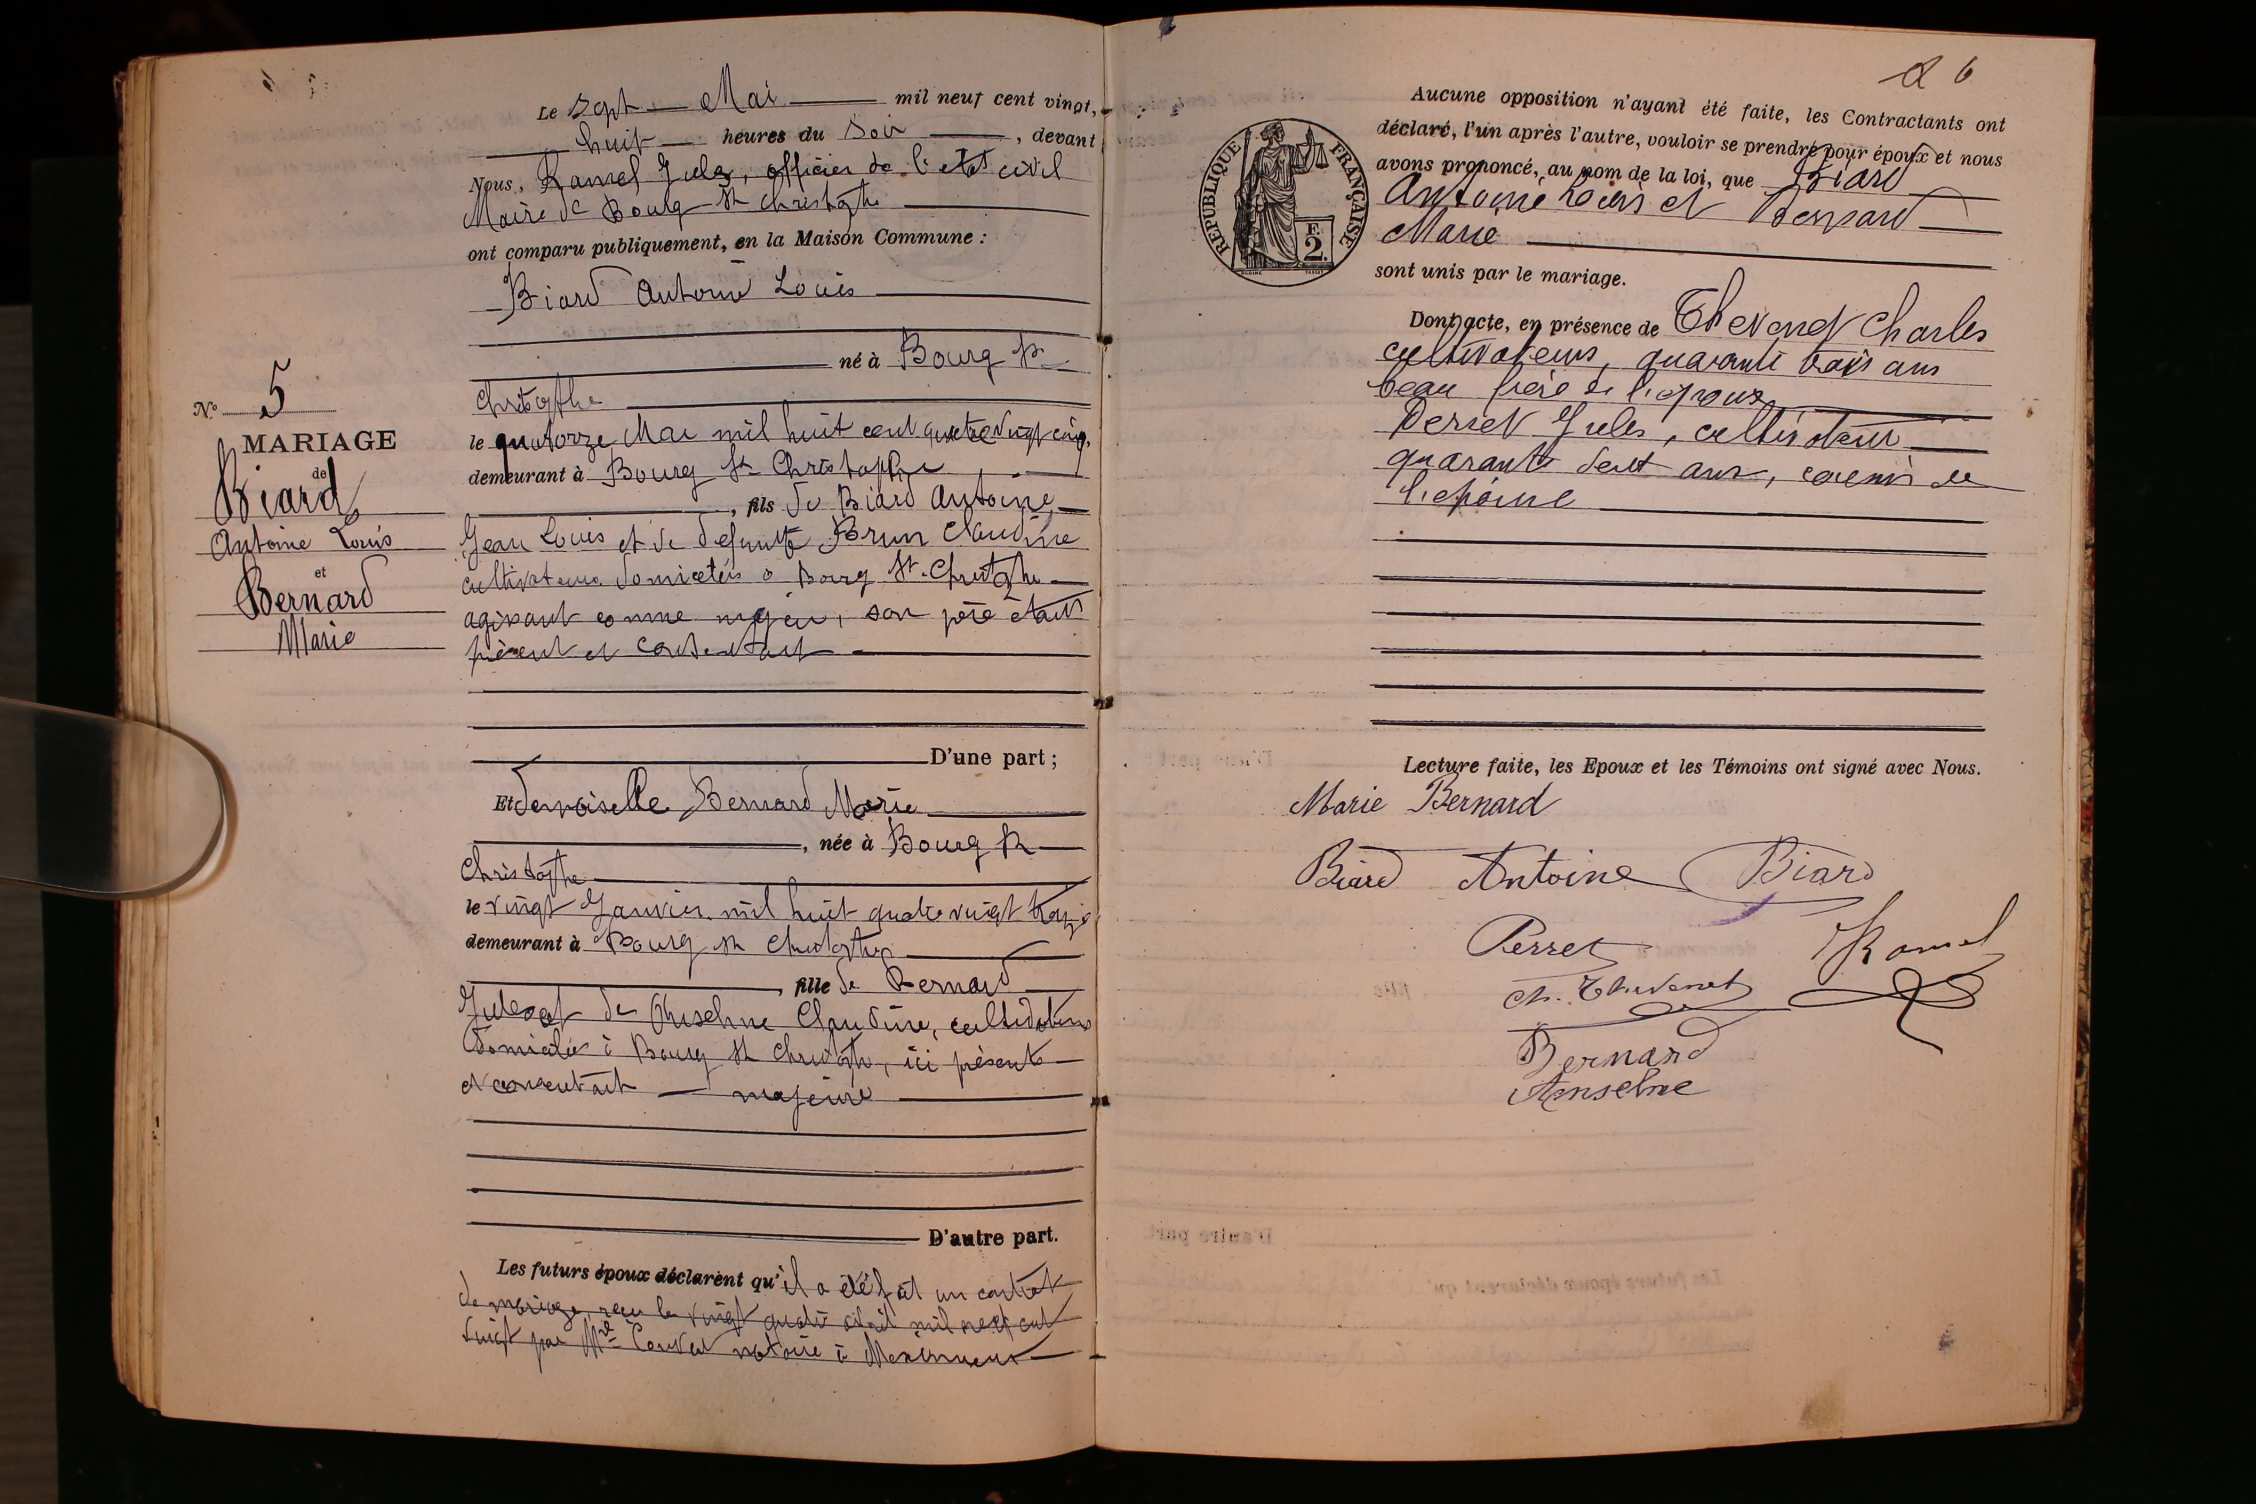 Le Sept Mai mil neuf cent vingt,
huit heures du Soir, devant
Nous, Ramel Jules, officier de l'etat civil
Maire de Bourg St Christophe
ont comparu publiquement, en la Maison Commune :
Biard Antoine Louis
né à Bourg St
Christophe
le quatorze Mai mil huit cent quatre vingt cinq,
demeurant à Bourg St Christophe,
, fils de Biard Antoine
Jean Louis et de defunte Brun Claudine
cultivateurs domiciliés à Bourg St Christophe
agissant comme majeur, son père étant
présent et consentant
D'une part ;
N° 5
MARIAGE
de
Biard
Antoine Louis
et
Bernard
Marie
Et demoiselle Bernard Marie
, née à Bourg St
Christophe
le vingt Janvier mil huit quatre vingt treize
demeurant à Bourg St Christophe
, fille de Bernard
Jules et de Anselme Claudine, cultivateurs
domiciliés à Bourg St Christophe, ici présents
et consentant majeure
D'autre part.
Les futurs époux déclarent qu'il a été fait un contrat
de mariage, reçu le vingt quatre avril mil neuf cent
vingt par Me notaire à Meximieux
6
RÉPUBLIQUE FRANÇAISE
F.
2.
Aucune opposition n'ayant été faite, les Contractants ont
déclaré, l'un après l'autre, vouloir se prendre pour époux et nous
avons prononcé, au nom de la loi, que Biard
Antoine Louis et Bernard
Marie
sont unis par le mariage.
Dont acte, en présence de Thevenet Charles
cultivateurs, quarante trois ans
beau frère de l'epoux
Perret Jules, cultivateur
quarante sept ans, cousin de
l'epouse
Lecture faite, les Epoux et les Témoins ont signé avec Nous.
Marie Bernard
Biard Antoine Biard
Perret Ramel
Ch. Thevenet
Bernard
Anselme